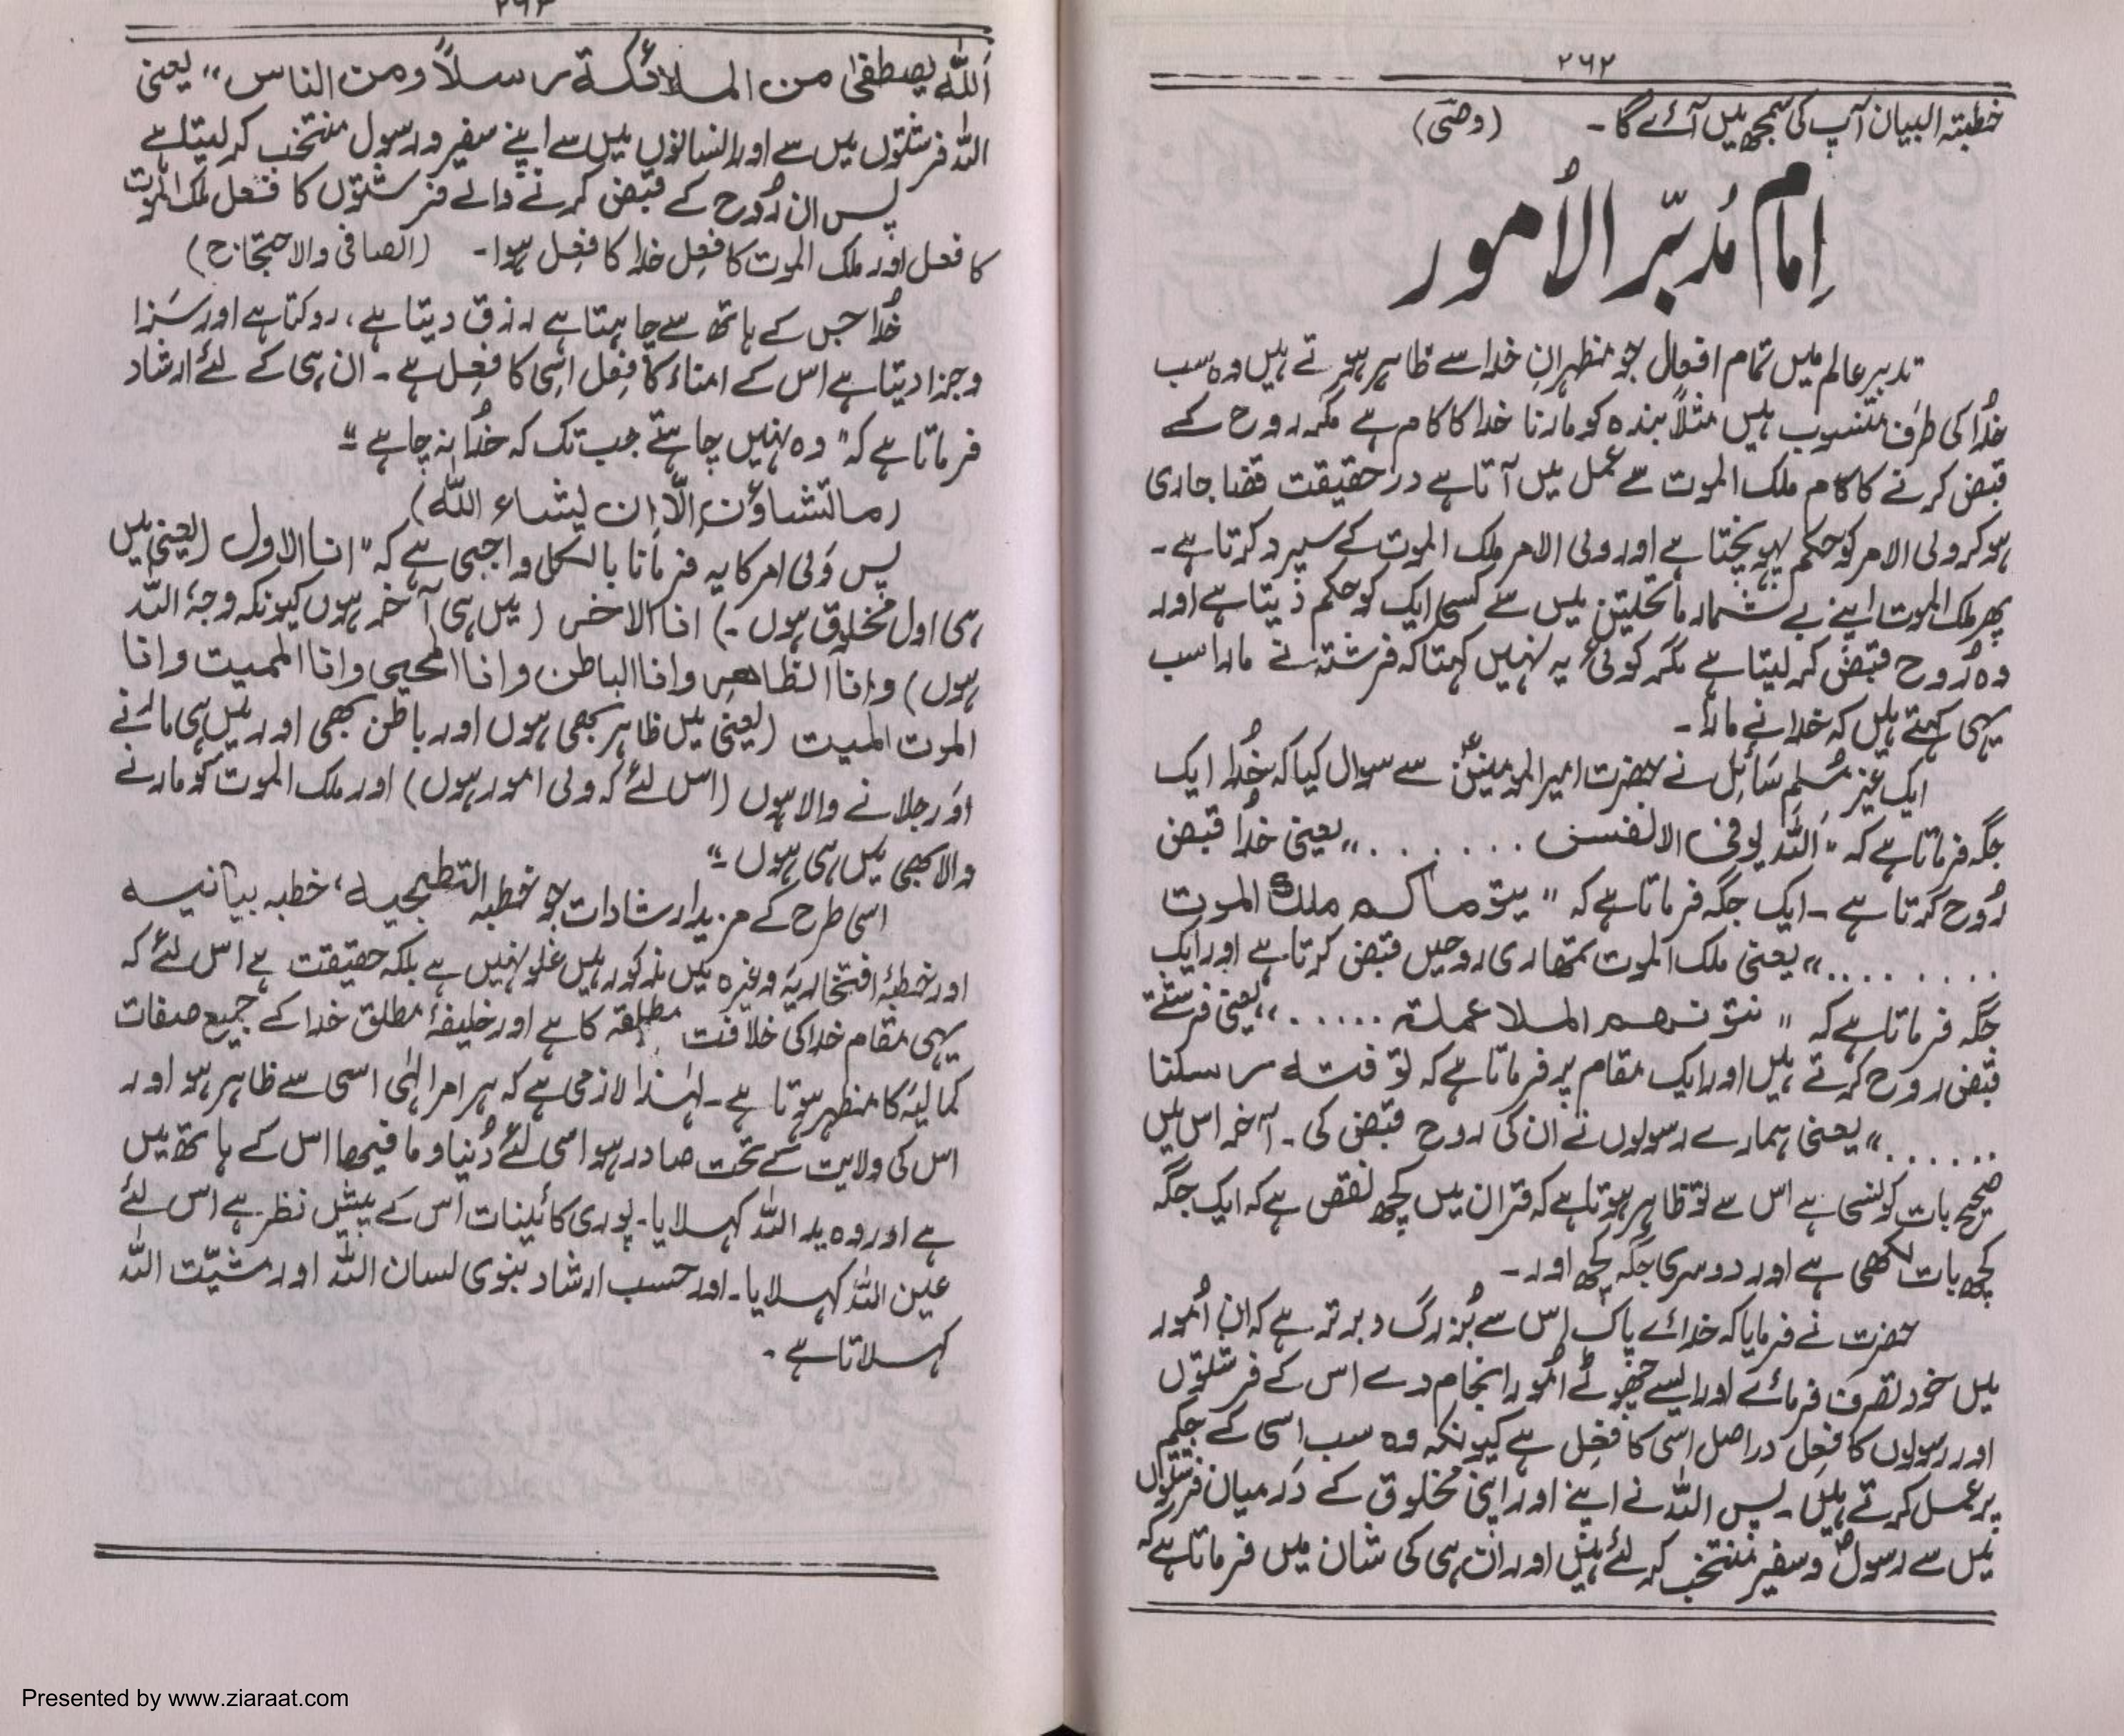 ۲۶۲
خطبتہ البیان آپ کی سمجھ میں آئے گا۔ (وصی)
اِمَام مُدبّر الاُمور
تدبیر عالم میں تمام افعال جو مظہرانِ خدا سے ظاہر ہوتے ہیں وہ سب
خُدا کی طرف منسوب ہیں مثلاً بندہ کو مارنا خدا کا کام ہے مگر روح کے
قبض کرنے کا کام ملک الموت سے عمل میں آتا ہے در حقیقت قضا جاری
ہو کر ولی الامر کو حکم پہونچتا ہے اور ولی الامر ملک الموت کے سپرد کرتا ہے۔
پھر ملک الموت اپنے بے شمار ماتحلیتن میں سے کسی ایک کو حکم دیتا ہے اور
وہ رُوح قبض کر لیتا ہے مگر کوئی یہ نہیں کہتا کہ فرشتہ نے مارا سب
یہی کہتے ہیں کہ خدا نے مارا۔
ایک غیر مُسلم سَائل نے حضرت امیر المومنینؑ سے سوال کیا کہ خُدا ایک
جگہ فرماتا ہے کہ "اَللہ یوفی الانفس . . . . . . ." یعنی خُدا قبض
رُوح کرتا ہے۔ ایک جگہ فرماتا ہے کہ "یتوماکم ملک الموت
. . . . . . . ." یعنی ملک الموت تمھاری روحیں قبض کرتا ہے اور ایک
جگہ فرماتا ہے کہ "نتونھم الملاعملۃ ......" یعنی فرشتے
قبض روح کرتے ہیں اور ایک مقام پر فرماتا ہے کہ توفتہ رسلنا
. . . . . ." یعنی ہمارے رسولوں نے ان کی روح قبض کی۔ آخر اس میں
صحیح بات کونسی ہے اس سے تو ظاہر ہوتا ہے کہ قران میں کچھ نقص ہے کہ ایک جگہ
کچھ بات لکھی ہے اور دوسری جگہ کچھ اور۔
حضرت نے فرمایا کہ خدائے پاک اس سے بُزرگ و برتر ہے کہ ان اُمور
میں خود تصرف فرمائے اور ایسے چھوٹے امُور انجام دے اس کے فرشتوں
اور رسولوں کا فعِل دراصل اسی کا فعِل ہے کیونکہ وہ سب اسی کے حکم
پر عمل کرتے ہیں۔ پس اللہ نے اپنے اور اپنی مخلوق کے درمیان فرشتوں
میں سے رسول و سفیر منتخب کر لئے ہیں اور ان ہی کی شان میں فرماتا ہے کہ
۲۶۳
اَللہ یصطفیٰ من الملائکۃ رسلاً ومن الناس" یعنی
اللہ فرشتوں میں سے اور انسانوں میں سے اپنے سفیر و رسول منتخب کر لیتا ہے
پس ان رُوح کے قبض کرنے والے فرشتوں کا فعل ملک الموت
کا فعل اور ملک الموت کا فعِل خدا کا فعِل ہوا۔ (الصافی والاحتجاج)
خُدا جس کے ہاتھ سے چاہتا ہے رزق دیتا ہے، روکتا ہے اور سَزا
و جزا دیتا ہے اس کے امناء کا فعِل اسی کا فعِل ہے۔ ان ہی کے لئے ارشاد
فرماتا ہے کہ "وہ نہیں چاہتے جب تک کہ خُدا نہ چاہے"۔
(مالتشاؤن اِلّا ان یشاء اللہ)
پس وَلی امر کا یہ فرمانا بالکل واجبی ہے کہ "انا الاول (یعنی میں
ہی اول مخلوق ہوں۔) انا الاخر (میں ہی آخر ہوں کیونکہ وجہُ اللہ
ہوں) وانا الظاھر وانا الباطن وانا المحیی وانا الممیت وانا
الموت الممیت (یعنی میں ظاہر بھی ہوں اور باطن بھی اور میں ہی مارنے
اور جلانے والا ہوں (اس لئے کہ ولی امور ہوں) اور ملک الموت کو مارنے
والا بھی میں ہی ہوں۔"
اسی طرح کے مزید ارشادات جو خطبہ التطبجیہ، خطبہ بیانیہ
اور خطبۂ افتخاریہ وغیرہ میں مذکور ہیں غلو نہیں ہے بلکہ حقیقت ہے اس لئے کہ
یہی مقام خدا کی خلافت مطلقہ کا ہے اور خلیفۂ مطلق خدا کے جمیع صفات
کمالیَہ کا مظہر ہوتا ہے۔ لہٰذا لازمی ہے کہ ہر امر الٰہی اسی سے ظاہر ہو اور
اس کی ولایت کے تحت صادر ہو اسی لئے دُنیا و مافیھا اس کے ہاتھ میں
ہے اور وہ ید اللہ کہلایا۔ پوری کائینات اس کے پیش نظر ہے اس لئے
عین اللہ کہلایا۔ اور حسب ارشاد نبوی لسان اللہ اور مشیّت اللہ
کہلاتا ہے۔
Presented by www.ziaraat.com